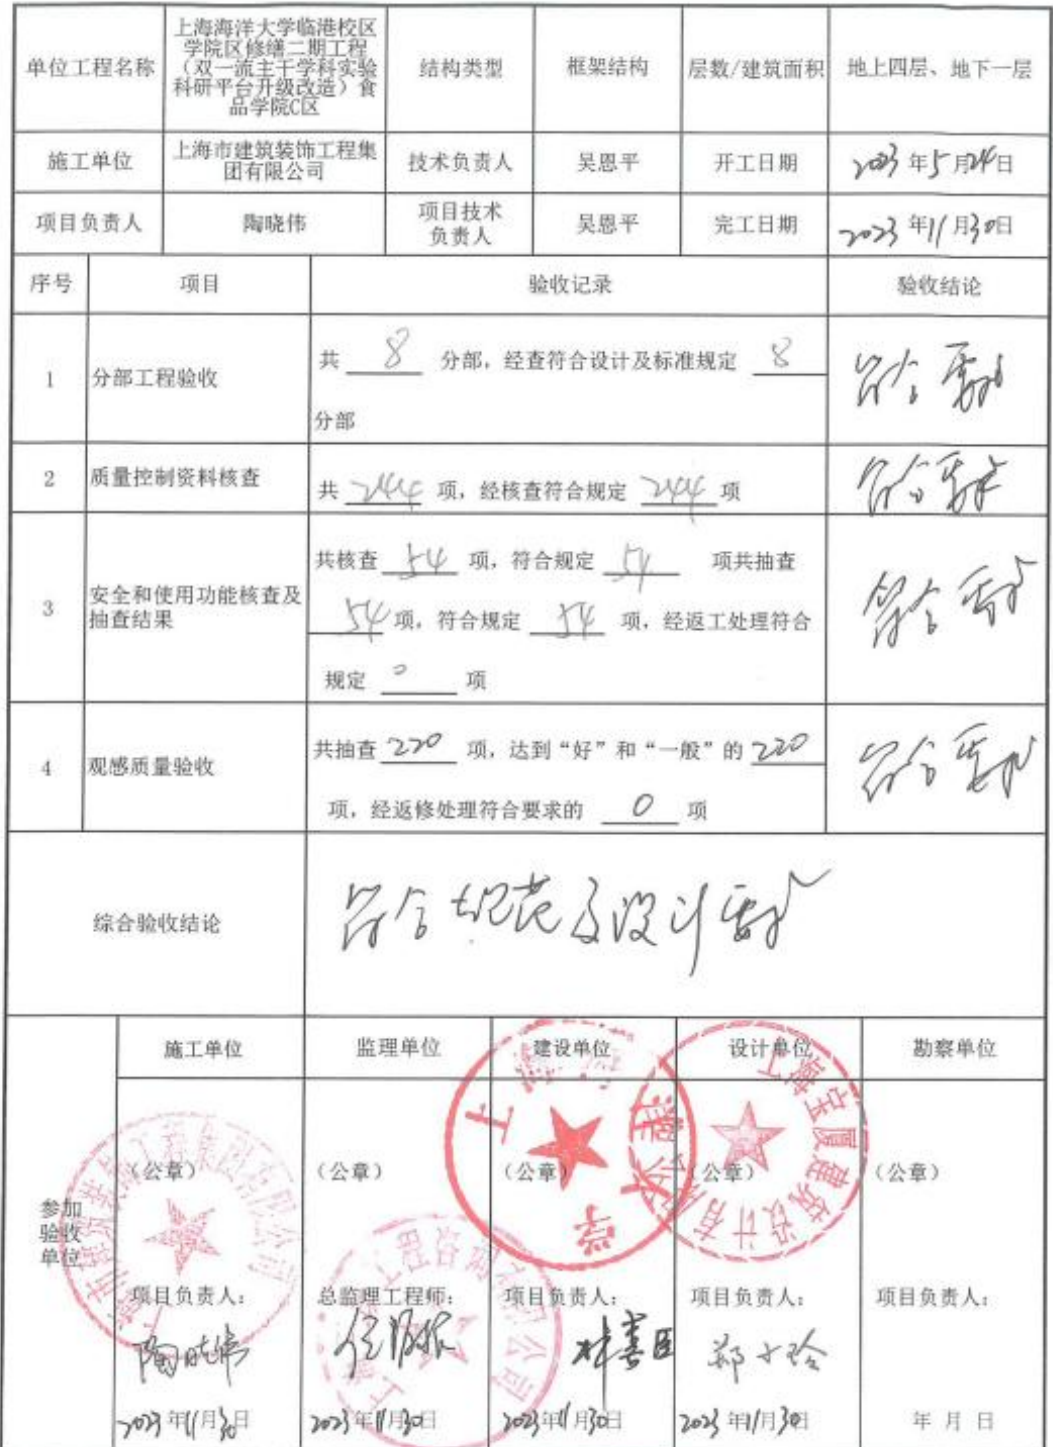 单位工程名称
上海海洋大学临港校区
学院区修缮二期工程
（双一流主干学科实验
科研平台升级改造）食
品学院C区
结构类型
框架结构
层数/建筑面积
地上四层、地下一层
施工单位
上海市建筑装饰工程集
团有限公司
技术负责人
吴恩平
开工日期
2023年5月24日
项目负责人
陶晓伟
项目技术
负责人
吴恩平
完工日期
2023年11月30日
序号
项目
验收记录
验收结论
1
分部工程验收
共 8 分部，经查符合设计及标准规定 8
分部
符合要求
2
质量控制资料核查
共 244 项，经核查符合规定 244 项
符合要求
3
安全和使用功能核查及
抽查结果
共核查 54 项，符合规定 54 项共抽查
54 项，符合规定 54 项，经返工处理符合
规定 0 项
符合要求
4
观感质量验收
共抽查 220 项，达到“好”和“一般”的 220
项，经返修处理符合要求的 0 项
符合要求
综合验收结论
符合规范及设计要求
参加
验收
单位
施工单位
监理单位
建设单位
设计单位
勘察单位
（公章）
（公章）
（公章）
（公章）
（公章）
项目负责人：
总监理工程师：
项目负责人：
项目负责人：
项目负责人：
陶晓伟
林喜臣
郑小玲
2023年11月30日
2023年11月30日
2023年11月30日
2023年11月30日
年 月 日